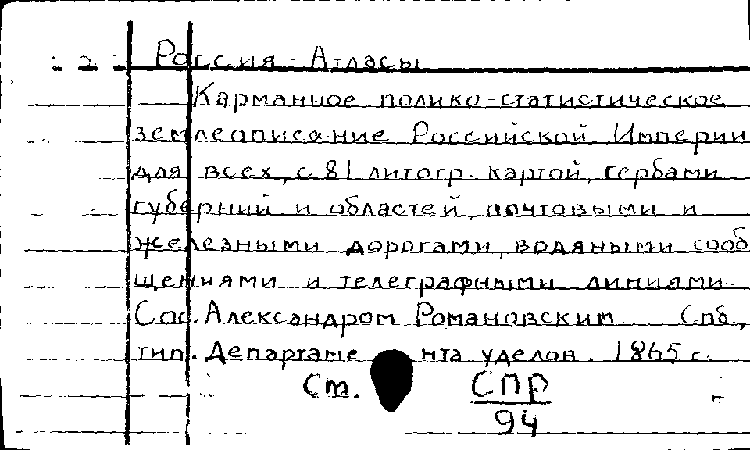 Россия - Атласы
Карманное полико-статистическое
землеописание Российской Империи
для всех, с 81 литогр. картой, гербами
губерний и областей, почтовыми и
железными дорогами, водяными сооб
щениями и телеграфными линиями.
Сос. Александром Романовским Спб,
тип. Департаме нта уделов. 1865 г.
Ст. СПР
94